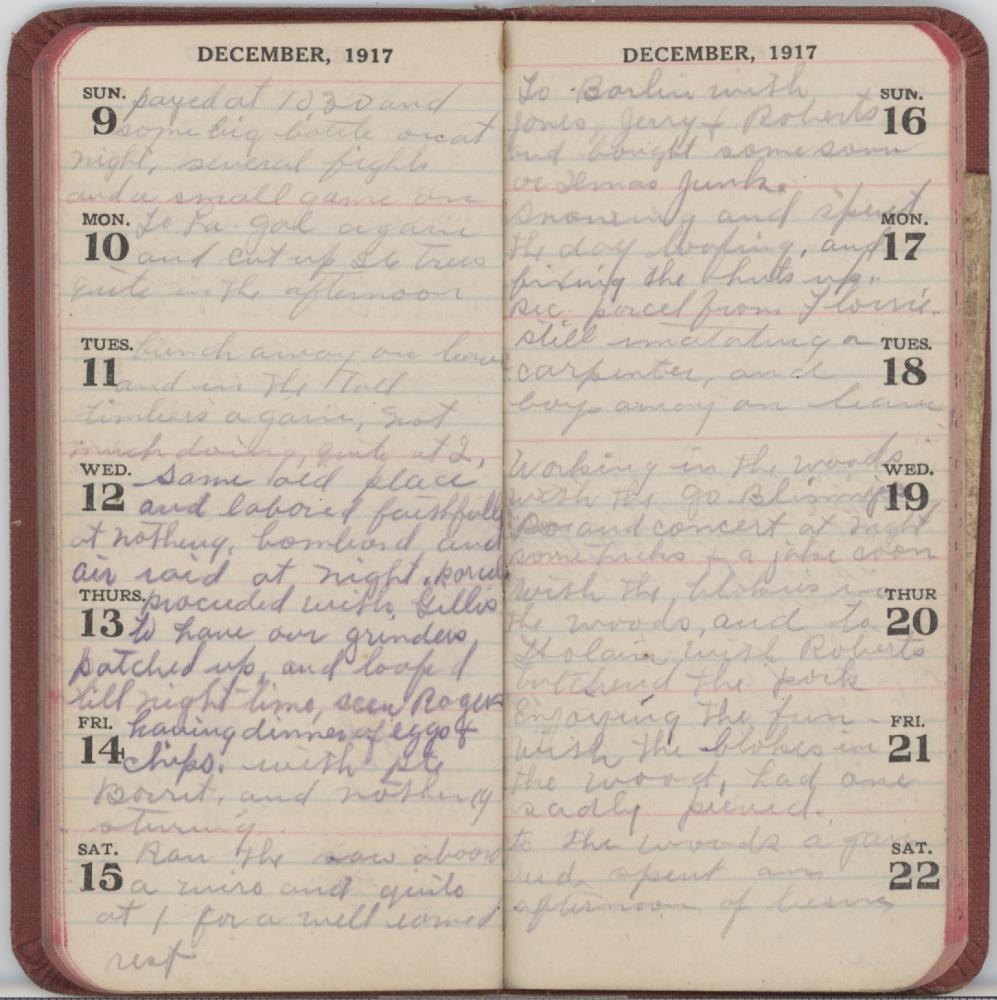 DECEMBER, 1917
SUN. 9 payed at 1030 and
some big battle on at
night, several fights
and a small game on
MON. 10 To again
and cut up 26 trees
quite in the afternoon
TUES. 11 bunch away on leave
and in the Tall
timbers again, not
much doing, quite at 2.
WED. 12 Same old place
and labored faithfully
at nothing, bombard, and
air raid at night.
THURS. 13 proceeded with Gillis
to have our grinders
patched up, and loafed
till night time, seen Rogers
FRI. 14 having dinner of eggs &
chips. with Pte
and nothing
SAT. 15 Ran the saw
a and quits
at 1 for a well earned
rest
DECEMBER, 1917
SUN. 16 To Barlin with
Jones, Jerry & Roberts
and bought some souv
or Xmas Junk.
MON. 17 Snowing and spent
the day loafing, and
fixing the huts up.
Rec parcel from Florrie.
TUES. 18 Still a
carpenter, and
boys away on leave
WED. 19 Working in the woods
with the Go
and concert at night
some & a jake coon
THUR 20 With the blokes in
the woods, and to
with Roberts
the pork
FRI. 21 Enjoying the fun
With the blokes in
the wood, had one
sadly
SAT. 22 to the woods again
and spent an
afternoon of